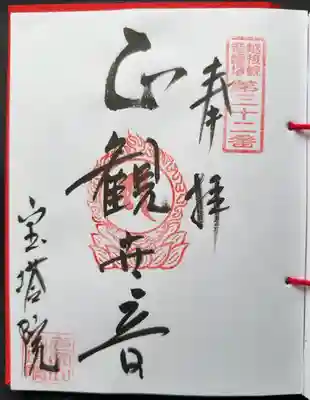 第三十二番
奉拝
正観世音
宝塔院